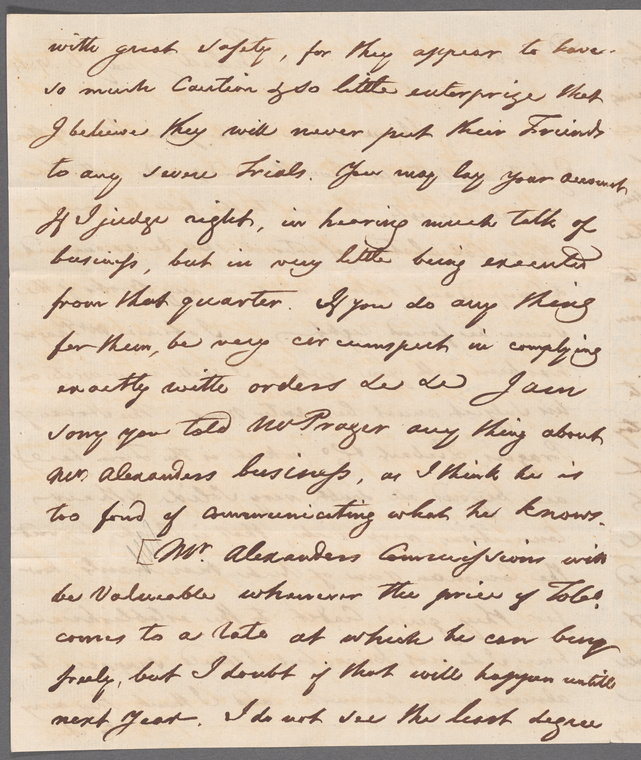 with great safety, for they appear to have
so much Caution & so little enterprize that
I believe they will never put their Friends
to any severe trials. You may lay your account
If I judge right, in hearing much talk of
business, but in very little being executed
from that quarter. If you do any thing
for them, be very circumspect in complying
exactly with orders &c &c I am
sorry you told Mr. Prager any thing about
Mr. Alexanders business, as I think he is
too fond of communicating what he knows.
[Mr. Alexanders Commissions will
be Valuable whenever the price of Tobo.
comes to a rate at which he can buy
freely, but I doubt if that will happen untill
next Year. I do not see the least degree